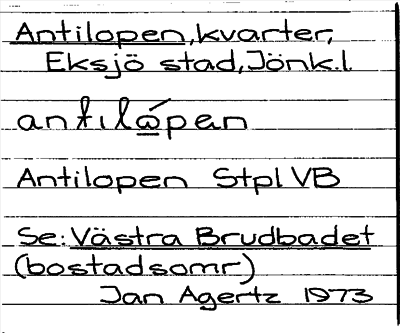 Antilopen, kvarter,
Eksjö stad, Jönk.l
antiló̲pen
Antilopen Stpl VB
Se: Västra Brudbadet
(bostadsomr)
Jan Agertz 1973